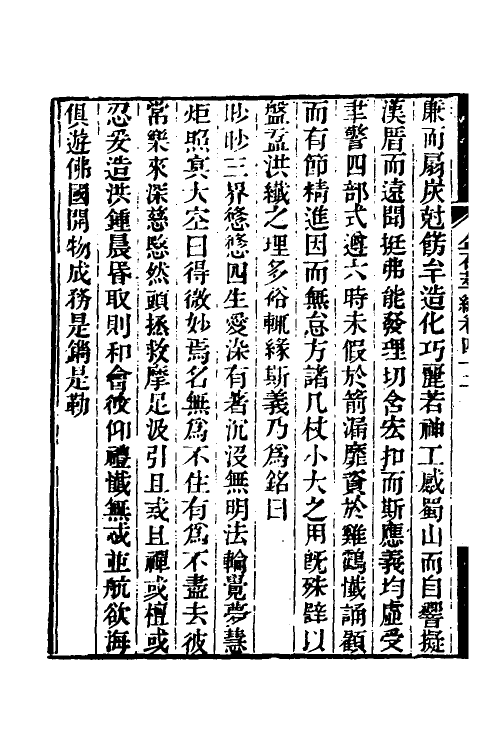 廉而扇炭尅餝年造化巧麗若神工感蜀山而自響擬
漢厝而遠聞挺弗能發理切含宏扣而斯應義均虛受
聿警四部式遵六時未假於箭漏靡資於雞鶴懺誦顧
而有節精進因而無怠方諸几杖小大之用旣殊辟以
盤盂洪纖之理多裕輒緣斯義乃爲銘曰
眇眇三界悠悠四生愛染有著沉沒無明法輪覺夢慧
炬照冥大空曰得微妙焉名無爲不住有爲不盡去彼
常樂來深慈愍然頭拯救摩足汲引且或且禪或檀或
忍爰造洪鍾晨昏取則和會彼仰禮懺無忒並航欲海
俱遊佛國開物成務是鐫是勒
金石萃編卷四十二